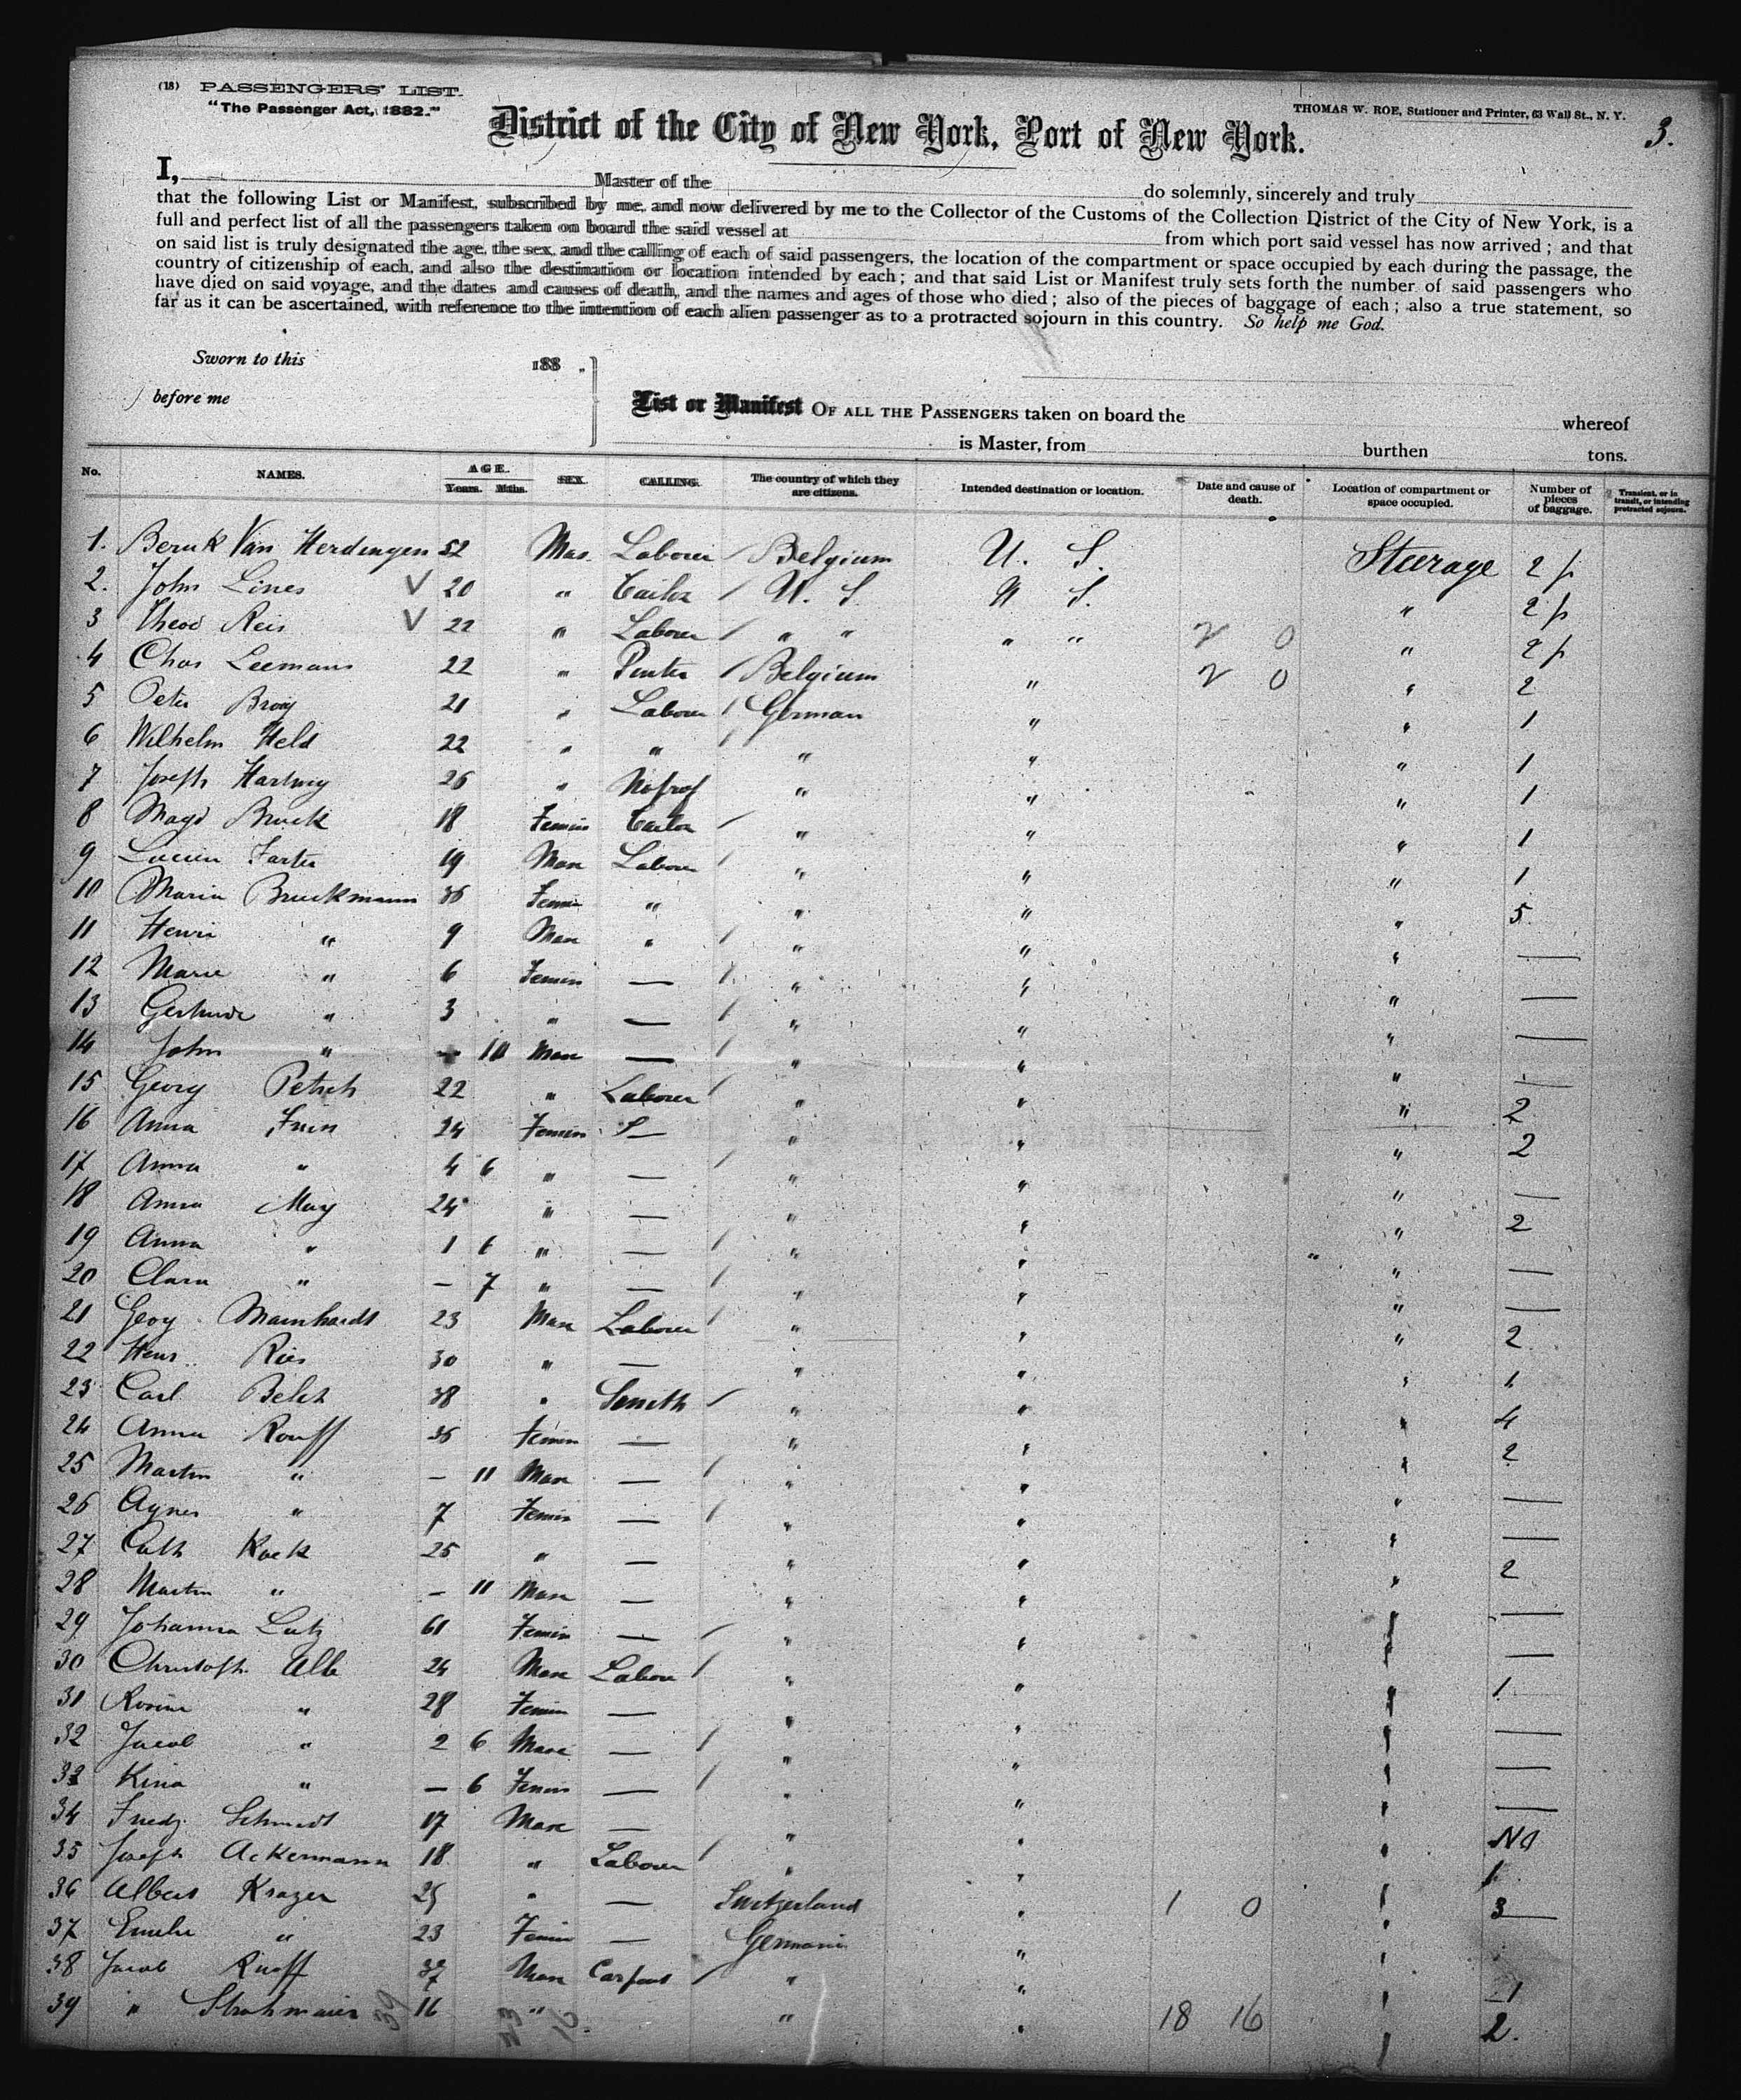 (18) PASSENGERS' LIST.
"The Passenger Act, 1882."
THOMAS W. ROE, Stationer and Printer, 63 Wall St., N. Y.
3.
District of the City of New York, Port of New York.
I, Master of the do solemnly, sincerely and truly
that the following List or Manifest, subscribed by me, and now delivered by me to the Collector of the Customs of the Collection District of the City of New York, is a
full and perfect list of all the passengers taken on board the said vessel at from which port said vessel has now arrived; and that
on said list is truly designated the age, the sex, and the calling of each of said passengers, the location of the compartment or space occupied by each during the passage, the
country of citizenship of each, and also the destination or location intended by each; and that said List or Manifest truly sets forth the number of said passengers who
have died on said voyage, and the dates and causes of death, and the names and ages of those who died; also of the pieces of baggage of each; also a true statement, so
far as it can be ascertained, with reference to the intention of each alien passenger as to a protracted sojourn in this country. So help me God.
Sworn to this 188
before me
List or Manifest OF ALL THE PASSENGERS taken on board the whereof
is Master, from burthen tons.
No. NAMES. AGE. Years. Mths. SEX. CALLING. The country of which they are citizens. Intended destination or location. Date and cause of death. Location of compartment or space occupied. Number of pieces of baggage. Transient, or in transit, or intending protracted sojourn.
1. Van Herdengen 52 Mas. Laborer Belgium U. S. Steerage 2 p
2. John Lines V 20 " Tailor U. S. U S. " 2 p
3 Theod Reis V 22 " Laborer " " " " 2 0 " 2 p
4 Chas Leemans 22 " Belgium " 2 0 " 2
5 Peter 21 " Laborer German " " 1
6 Wilhelm Held 22 " " " " " 1
7 Joseph Hartwig 26 " No prof " " " 1
8 Magd Bruck 18 Femin Tailor " " " 1
9 Lucien 19 Mas Labour " " " 1
10 Maria Bruckmann 36 Femin " " " " 5
11 Henri " 9 Mas " " " " —
12 Marie " 6 Femin — " " " —
13 Gertrude " 3 " — " " " —
14 John " — 10 Mas — " " " —
15 Georg Petsch 22 " Laborer " " " 2
16 Anna 24 Femin " " " 2
17 Anna " 4 6 " — " " " —
18 Anna May 24 " — " " " 2
19 Anna " 1 6 " — " " " —
20 Clara " — 7 " — " " " —
21 Georg Mainhardt 23 Mas Laborer " " " 2
22 Ries 30 " — " " " 1
23 Carl 38 " Smith " " " 4
24 Anna Rouff 36 Femin — " " " 2
25 Martin " — 11 Mas — " " " —
26 Agnes " 7 Femin — " " " —
27 Cath Kock 25 " — " " " 2
28 Martin " — 11 Mas — " " " —
29 Johanna Lutz 61 Femin — " " " —
30 Christoph Alb 24 Mas Labour " " " 1
31 Rosina " 28 Femin — " " " —
32 Jacob " 2 6 Mas — " " " —
33 " — 6 Femin — " " " —
34 Friedr Schmidt 17 Mas — " " " No
35 Joseph Ackermann 18 " Labour " " " 1
36 Albert Krazer 25 " — Switzerland " 1 0 " 3
37 Emilie " 23 Femin — Germani " "
38 Jacob Ruoff 37 Mas Carpent " " " 1
39 " Strohmaier 39 16 " 23 16 " " 18 16 " 2.